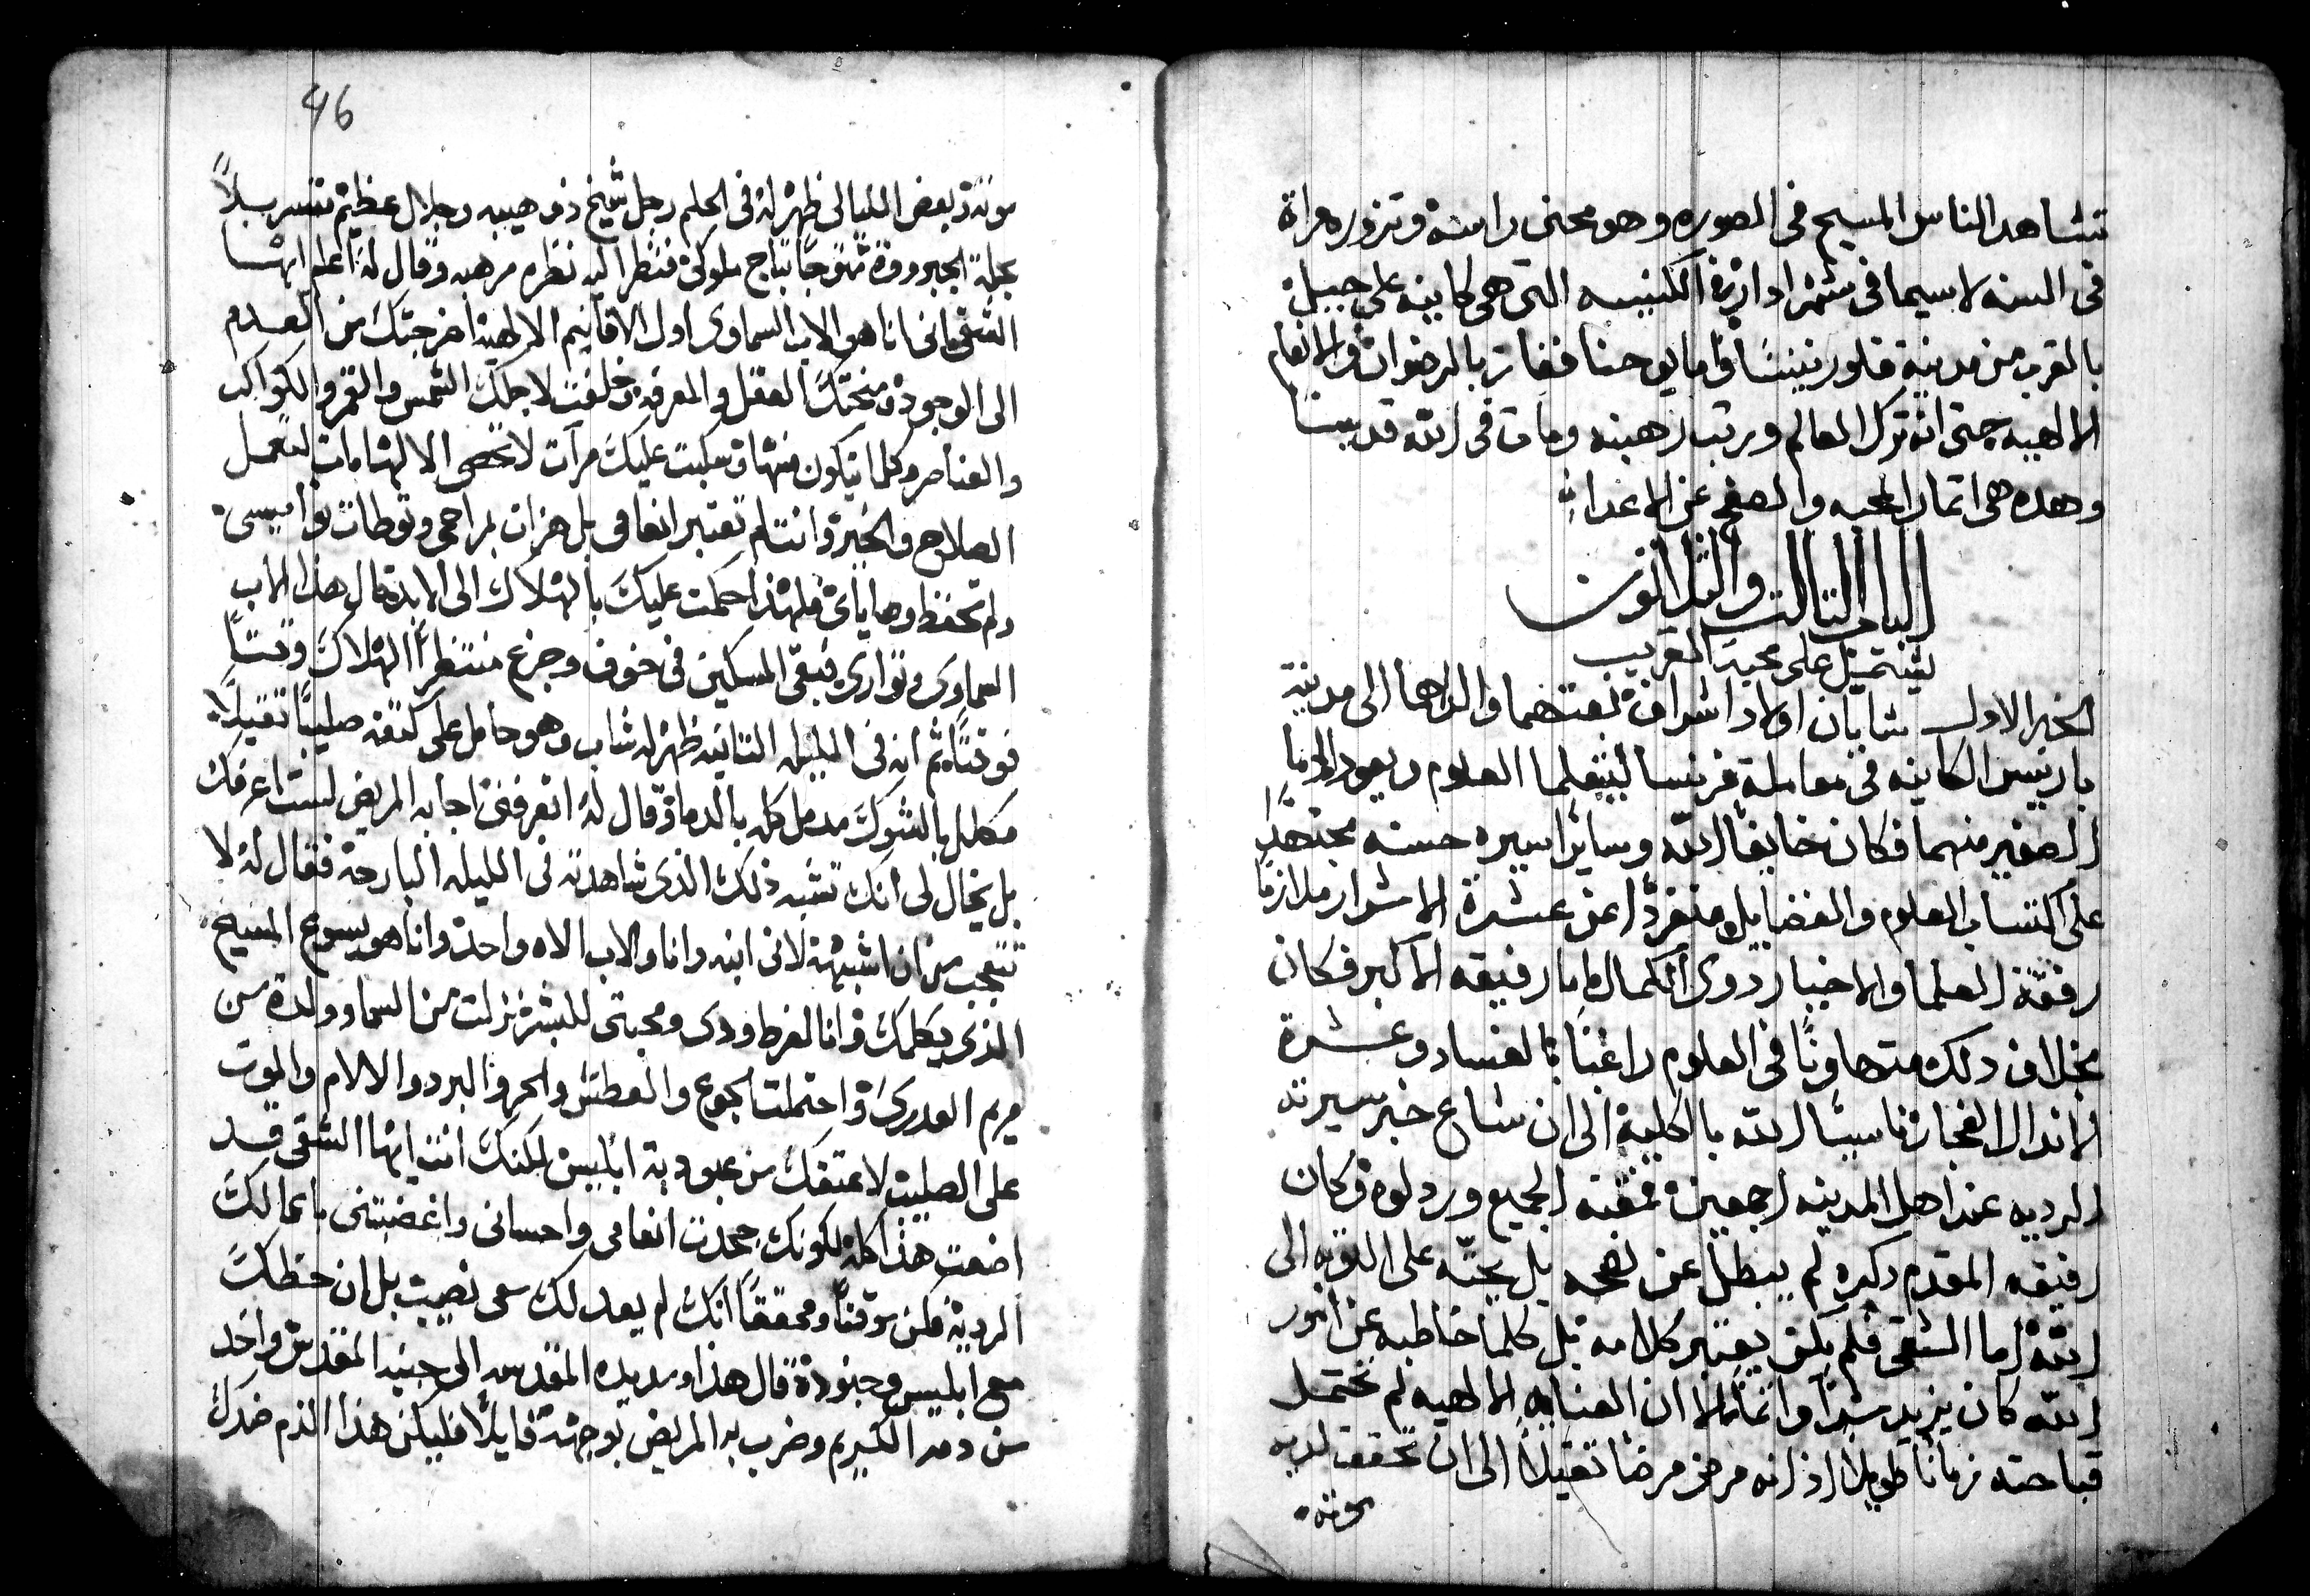 تتشاهد الناس المسيح فى الصوره وهو محنى راسه وتزوره مراة
فى السنه لاسيما فى شهر ادار فى الكنيسه التى هى كاينه على جبل
بالقرب من مدينة فلورنينسا واما يوحنا ففاز بالرضوان والانعام
الالهيه حتى انه ترك العالم وترتب رهبنه ومات فى الله قديسا
وهده هى اتمار المحبه والصفح عن الاعدا
الباب التالت والثلاثون
يشتميل على محبة القريب
الخبر الاول شابان اولاد اشراف بعتهما والداهما الى مدينة
باريس الكاينه فى معاملة فرنسا ليتعلما العلوم ويعودا اما
الصغير منهما فكان خايفا الله وسايرا سيره حسنه مجتهدا
على اكتساب العلوم والفضايل منفردا عن عشرة الاشرار ملازما
رفقة العلما والاخيار دوى الكمال اما رفيقه الاكبر فكان
بخلاف دلك متهاونا فى العلوم راغبا بالفساد وعشرة
الاندال الفجار ناسيا الله بالكلية الى ان شاع خبر سيرته
الرديه عند اهل المدينه اجمعين فمقته الجميع وردلوه وكان
رفيقه المقدم دكره لم يبطل عن نصحه بل يحته على التوبه الى
الله اما الشقى فلم يكن يعتبر كلامه بل كلما خاطبه عن امور
الله كان يزيد شرا واتما الا ان العنايه الالهيه لم تحتمل
قباحته زمانا طويلا اد انه مرض مرضا تقيلا الى ان تحقق لديه
موته
46
موته وبعض الليالى ظهر له فى الحلم رجل شيخ دو هيبه وجلال عظيم متسربلا
بحلة الحبر متوجا بتاج ملوكى فنظر اليه نظره مرهبه وقال له اعلم ايها
الشقى انى انا هو الاب السماوى اول الاقانيم الالهية اخرجتك من العدم
الى الوجود ومنحتك العقل والمعرفه وخلقت لاجلك الشمس والقمر والكواكب
والعناصر وكلما يتكون منها وسكبت عليك مرات لا تحصى الالهامات لتعمل
الصلاح والخير وانت لم تعتبر انعامى بل هزات بمراحمى وتوطات نواميسى
ولم تحفظ وصاياى فلهذا حكمت عليك بالهلاك الى الابد قال هذا الاب
السماوى وتوارى فبقى المسكين فى خوف وجزع منتظرا الهلاك وقتا
فوقتا ثم انه فى الليله التانيه ظهر له شاب وهو حامل على كتفه صليبا تقيلا
مكلل بالشوك مدمل كله بالدما وقال له اتعرفنى اجابه المريض لست اعرفك
بل يخال لى انك تشبه ذلك الذى شاهدته فى الليله البارحه فقال له لا
تتعجب من ان اشبهه لانى ابنه وانا والاب الاه واحد وانا هو يسوع المسيح
الذى يكلمك وانا لفرط ودى ومحبتى للبشر نزلت من السما وولدت من
مريم العدرى واحتملت الجوع والعطش والحر والبرد والالام والموت
على الصليب لاعتقك من عبودية ابليس لكنك انت ايها الشقى قد
اضعت هذا كله لكونك جحدت انعامى واحسانى واغضبتنى باعمالك
الرديه فكن موقنا ومحققا انك لم يعد لك معى نصيب بل ان حظك
مع ابليس وجنوده قال هذا ومد يده المقدسه الى جنبه المقدس واخد
من دمه الكريم وضرب به المريض بوجهه قايلا فليكن هذا الدم ضدك